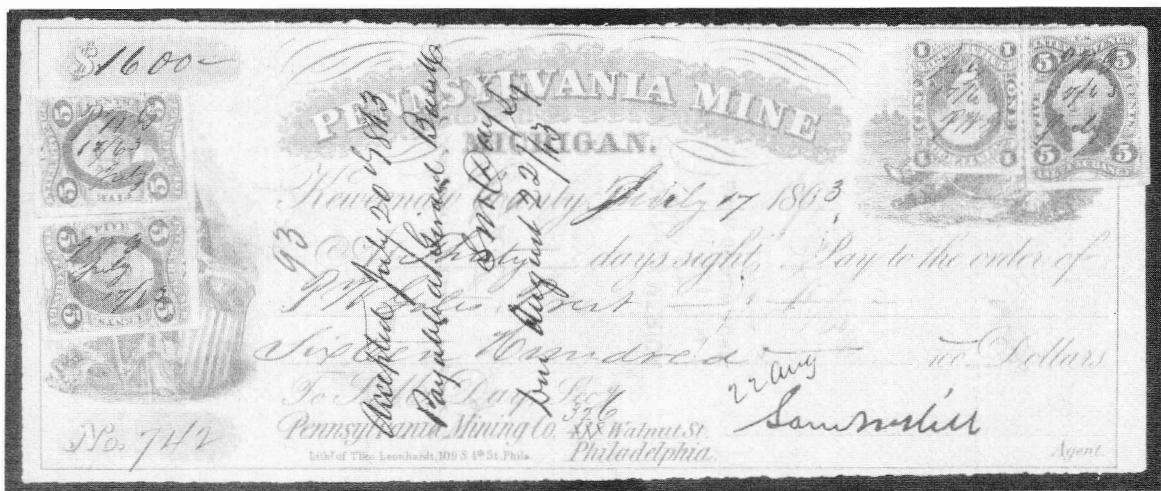 $1600
PENNSYLVANIA MINE
MICHIGAN.
Keweenaw County July 17 1863
93 @ Thirty days sight, Pay to the order of
Sixteen Hundred 100 Dollars
To S. M. Day Secy
326
Pennsylvania Mining Co. Walnut St.
Philadelphia.
No. 742
Lith! of Theo. Leonhardt, 109 S. 4th St. Phila.
22 Aug
Sam W Hill
Agent.
Accepted July 20 1863
Payable at Girard Bank
S M Day Secy
due August 22/63